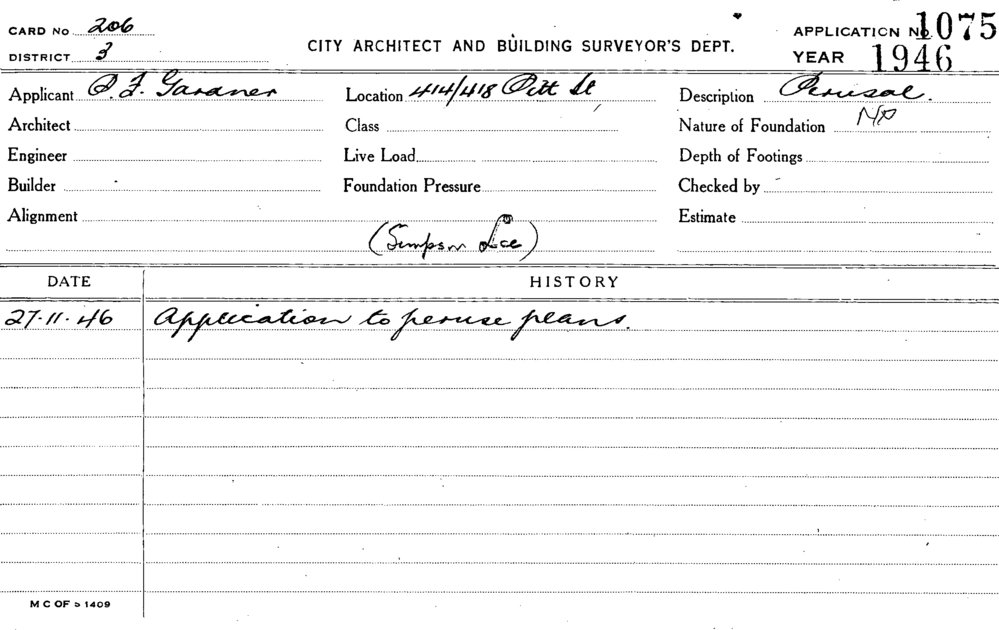 CARD No 206
DISTRICT 3
CITY ARCHITECT AND BUILDING SURVEYOR'S DEPT.
APPLICATION No. 1075
YEAR 1946
Applicant F. Gardner
Location 414/418 Pitt St
Description Perusal.
Architect
Class
Nature of Foundation
Engineer
Live Load
Depth of Footings
Builder
Foundation Pressure
Checked by
Alignment
Estimate
(Simpson Lee)
DATE
HISTORY
27.11.46 Application to peruse plans.
M C OF S 1409